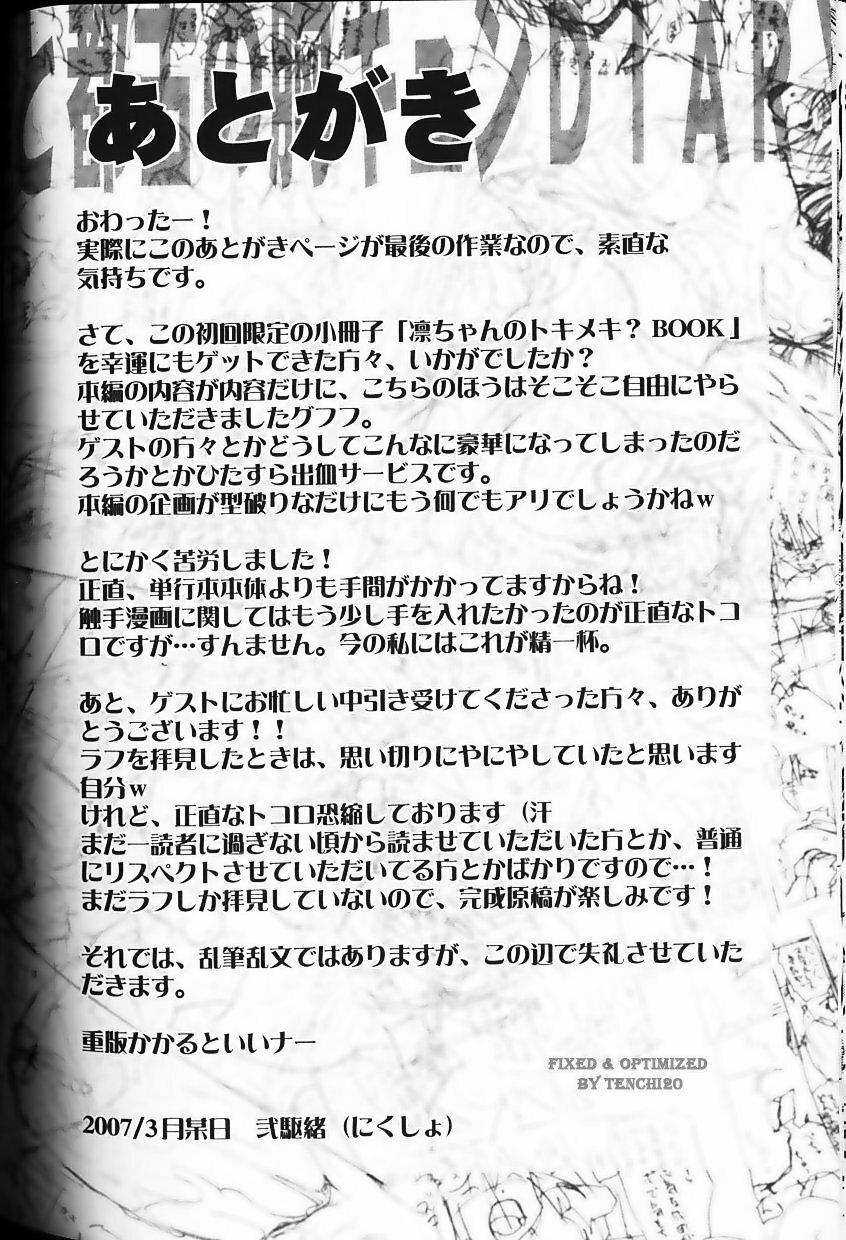 あとがき
おわったー！
実際にこのあとがきページが最後の作業なので、素直な
気持ちです。
さて、この初回限定の小冊子「凛ちゃんのトキメキ？ BOOK」
を幸運にもゲットできた方々、いかがでしたか？
本編の内容が内容だけに、こちらのほうはそこそこ自由にやら
せていただきましたグフフ。
ゲストの方々とかどうしてこんなに豪華になってしまったのだ
ろうかとかひたすら出血サービスです。
本編の企画が型破りなだけにもう何でもアリでしょうかねｗ
とにかく苦労しました！
正直、単行本本体よりも手間がかかってますからね！
触手漫画に関してはもう少し手を入れたかったのが正直なトコ
ロですが…すんません。今の私にはこれが精一杯。
あと、ゲストにお忙しい中引き受けてくださった方々、ありが
とうございます！！
ラフを拝見したときは、思い切りにやにやしていたと思います
自分ｗ
けれど、正直なトコロ恐縮しております（汗
まだ一読者に過ぎない頃から読ませていただいた方とか、普通
にリスペクトさせていただいてる方とかばかりですので…！
まだラフしか拝見していないので、完成原稿が楽しみです！
それでは、乱筆乱文ではありますが、この辺で失礼させていた
だきます。
重版かかるといいナー
FIXED & OPTIMIZED
BY TENCHI20
2007/3月某日　弐駆緒（にくしょ）